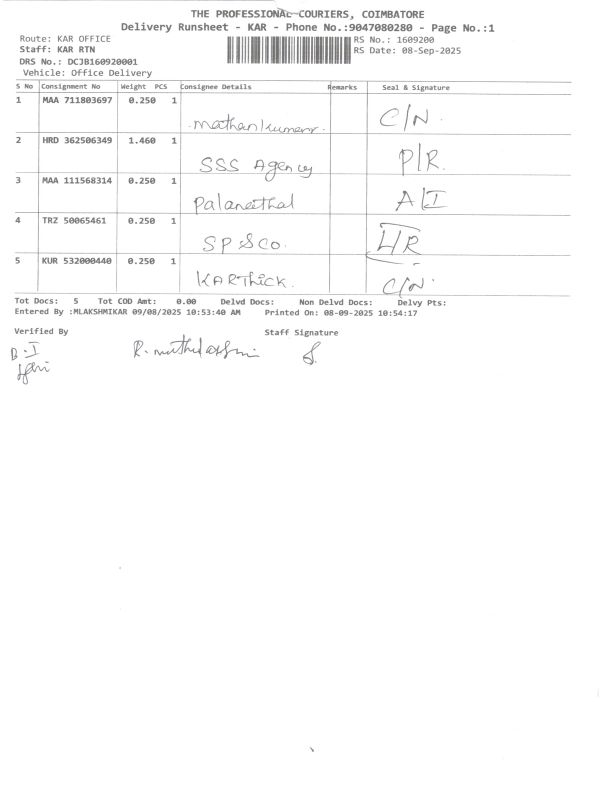 THE PROFESSIONAL COURIERS, COIMBATORE
Delivery Runsheet - KAR - Phone No.:9047080280 - Page No.:1
Route: KAR OFFICE RS No.: 1609200
Staff: KAR RTN RS Date: 08-Sep-2025
DRS No.: DCJB160920001
Vehicle: Office Delivery
S No Consignment No Weight PCS Consignee Details Remarks Seal & Signature
1 MAA 711803697 0.250 1
C/N.
2 HRD 362506349 1.460 1
SSS Agency P/R.
3 MAA 111568314 0.250 1
A/I
4 TRZ 50065461 0.250 1
5 KUR 532000440 0.250 1
KARThick. C/N
Tot Docs: 5 Tot COD Amt: 0.00 Delvd Docs: Non Delvd Docs: Delvy Pts:
Entered By :MLAKSHMIKAR 09/08/2025 10:53:40 AM Printed On: 08-09-2025 10:54:17
Verified By Staff Signature